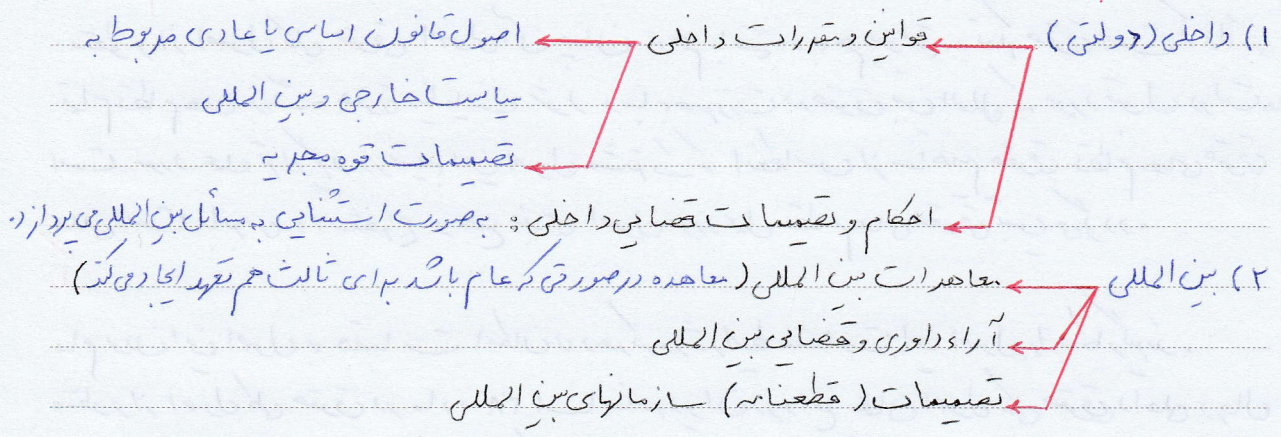 ۱) داخلی (دولتی) قوانین و مقررات داخلی اصول قانون اساسی یا عادی مربوط به
سیاست خارجی و بین المللی
تصمیمات قوه مجریه
احکام و تصمیمات قضایی داخلی : به صورت استثنایی به مسائل بین المللی می پردازد.
۲) بین المللی معاهدات بین المللی (معاهده در صورتی که عام باشد برای ثالث هم تعهد ایجاد می کند)
آراء داوری و قضایی بین المللی
تصمیمات (قطعنامه) سازمانهای بین المللی